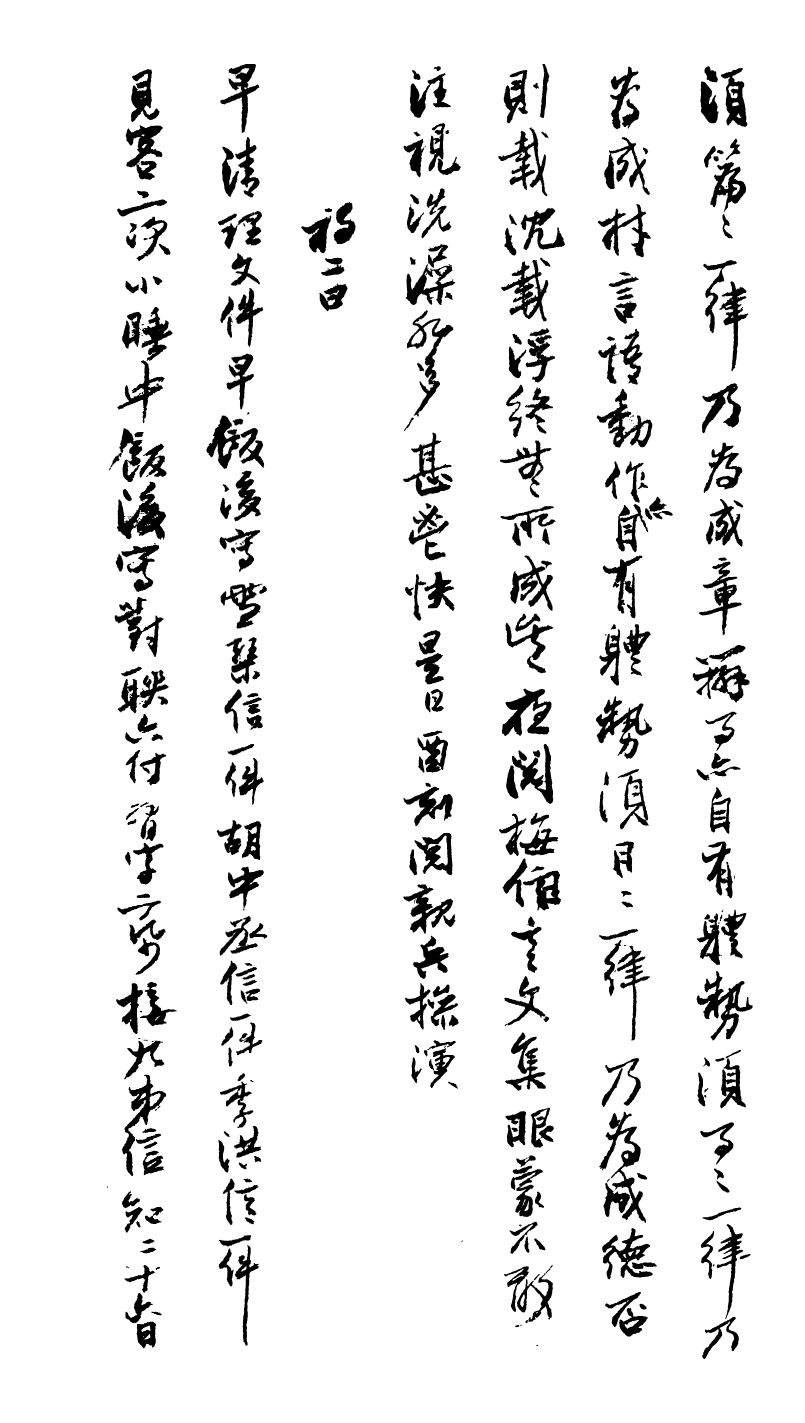 須篇〻一律乃為成章辦事亦自有體勢須事〻一律乃
為成材言語動作亦自有體勢須日〻一律乃為成德否
則載沈載浮終無所成矣夜閱梅伯言文集眼蒙不敢
注視洗澡後甚鬯快是日酉刻閱親兵操演
初二日
早清理文件早飯後寫雪琴信一件胡中丞信一件季洪信一件
見客二次小睡中飯後寫對聯六付習字二帋接九弟信知二十六日